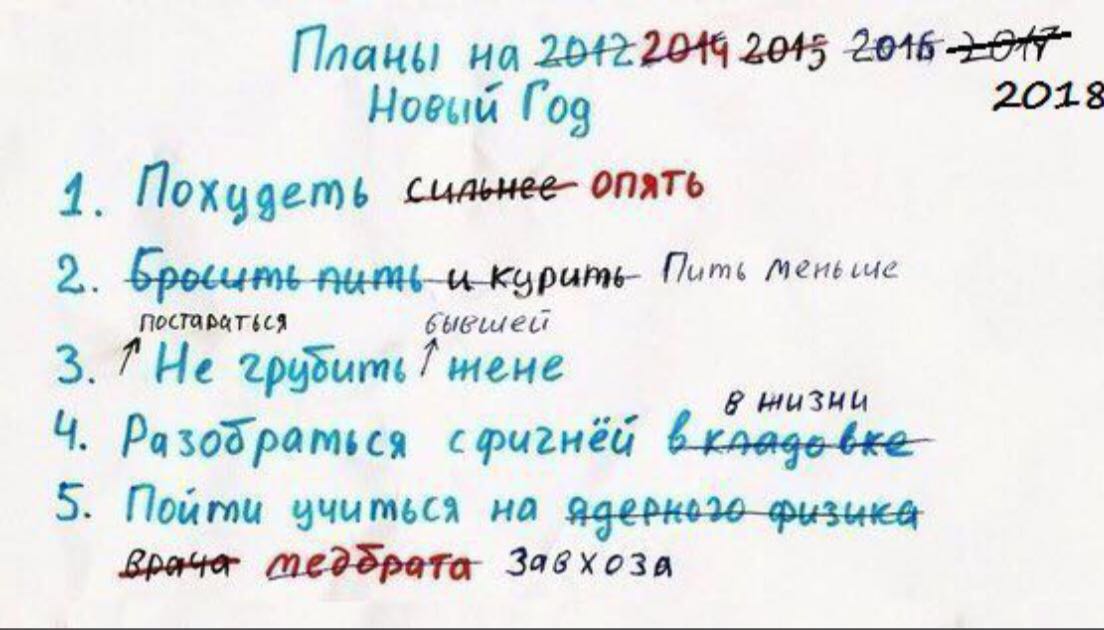 Планы на 2012 2014 2015 2016 2017
Новый Год 2018
1. Похудеть сильнее опять
2. Бросить пить и курить Пить меньше
постараться бывшей
3. Не грубить жене
в жизни
4. Разобраться с фигнёй в кладовке
5. Пойти учиться на ядерного физика
врача медбрата завхоза